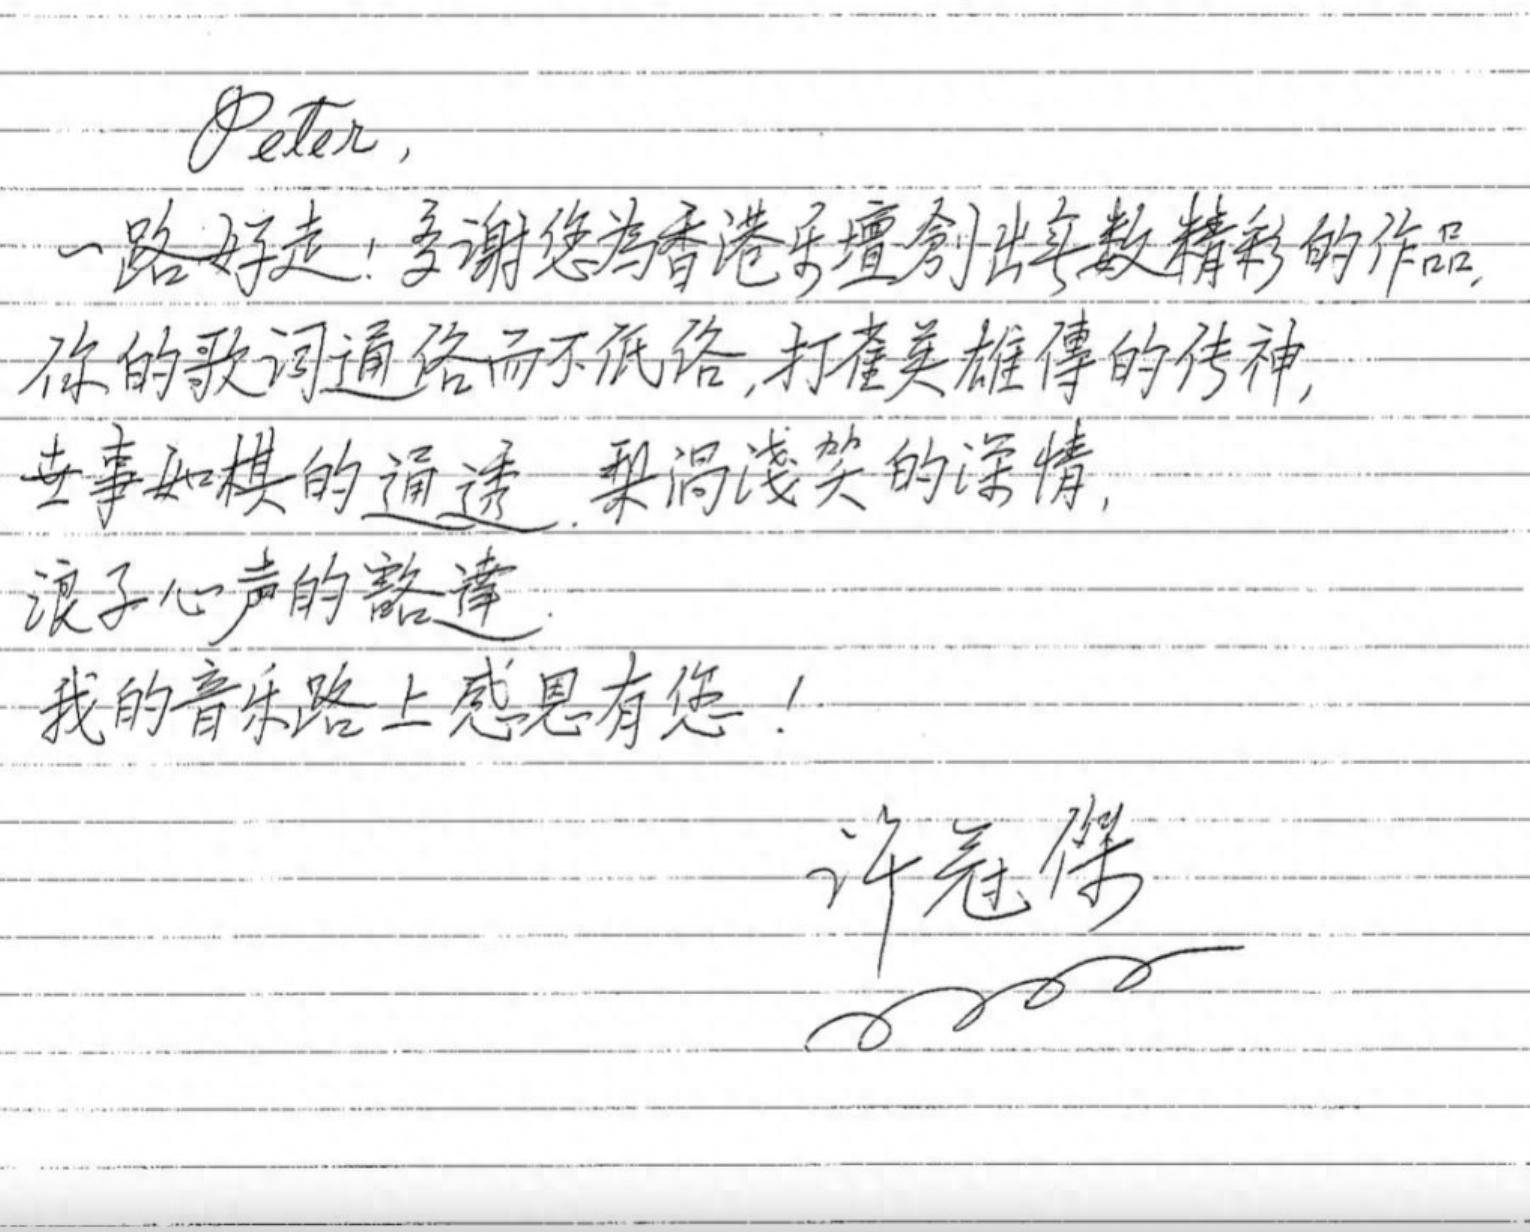 Peter,
一路好走！多謝您為香港乐壇創出无数精彩的作品,
你的歌词通俗而不低俗,打雀英雄傳的传神,
世事如棋的通透.梨渦淺笑的深情,
浪子心声的豁達.
我的音乐路上感恩有您！
许冠傑